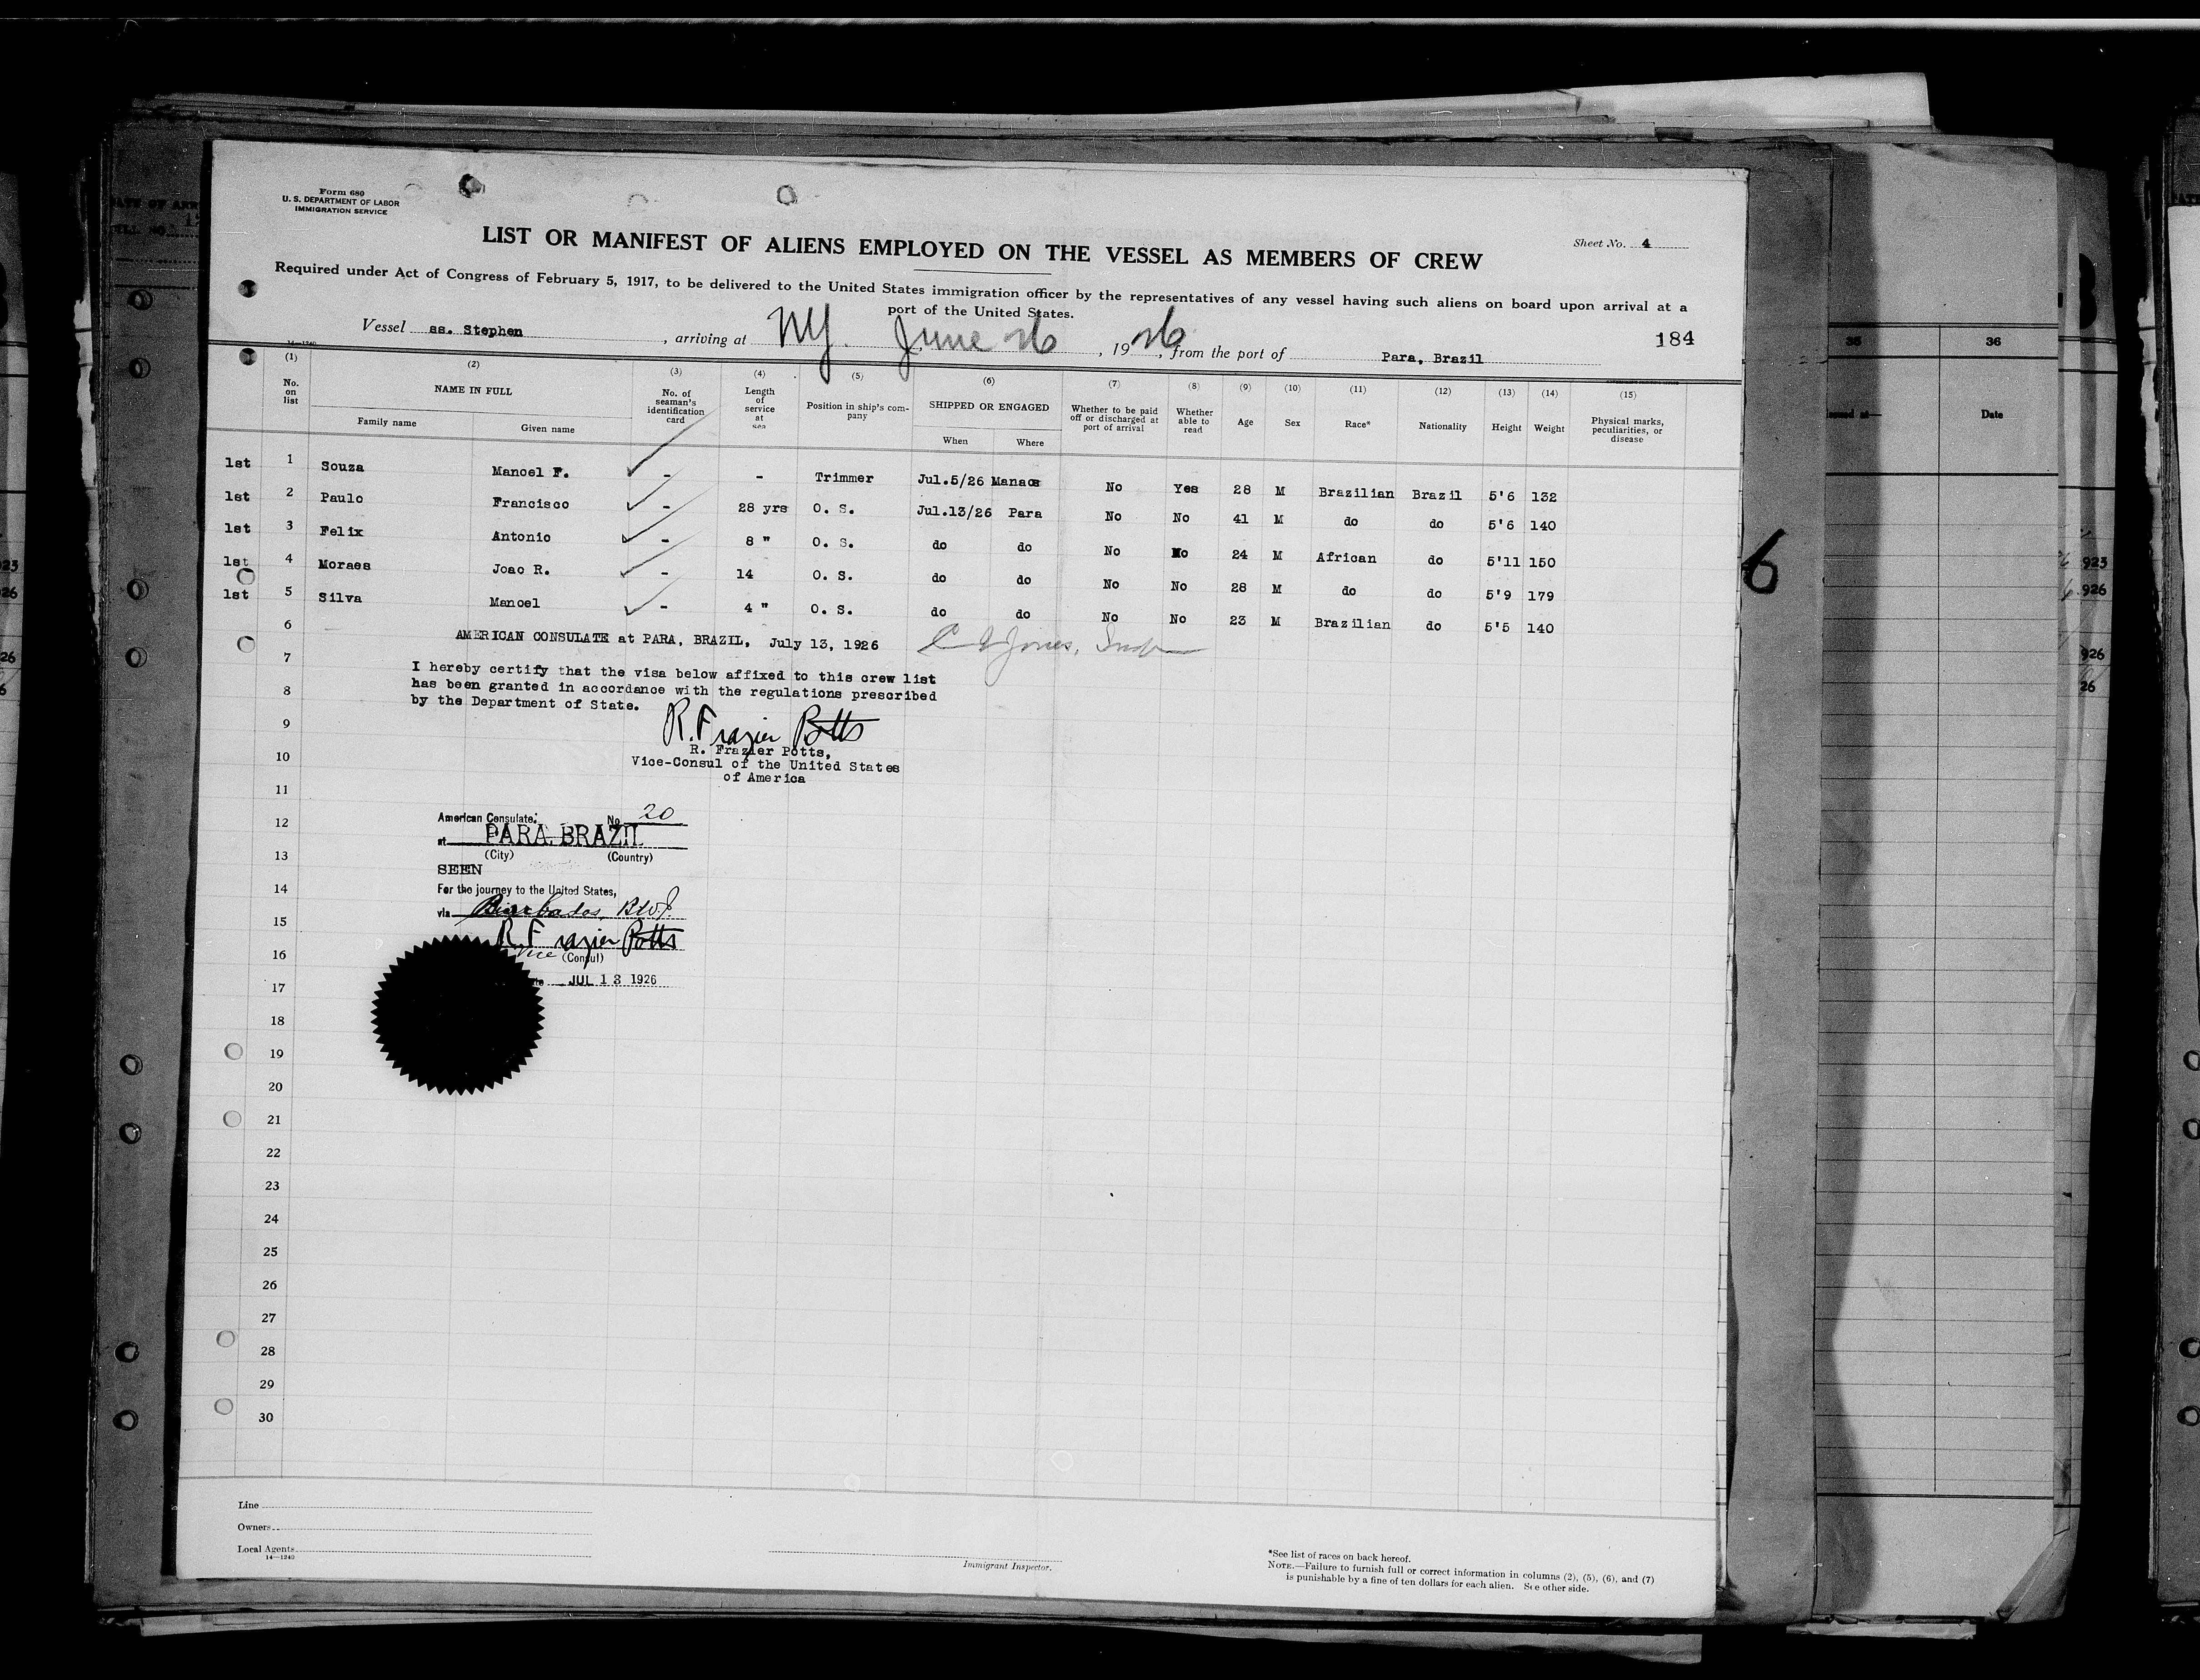 Form 680
U. S. DEPARTMENT OF LABOR
IMMIGRATION SERVICE
Sheet No. 4
LIST OR MANIFEST OF ALIENS EMPLOYED ON THE VESSEL AS MEMBERS OF CREW
Required under Act of Congress of February 5, 1917, to be delivered to the United States immigration officer by the representatives of any vessel having such aliens on board upon arrival at a
port of the United States.
Vessel ss. Stephen, arriving at NY. June 26, 1926, from the port of Para, Brazil
184
14—1240
(1) (2) (3) (4) (5) (6) (7) (8) (9) (10) (11) (12) (13) (14) (15)
No. on list NAME IN FULL Family name Given name No. of seaman's identification card Length of service at sea Position in ship's company SHIPPED OR ENGAGED When Where Whether to be paid off or discharged at port of arrival Whether able to read Age Sex Race* Nationality Height Weight Physical marks, peculiarities, or disease
1st 1 Souza Manoel F. - - Trimmer Jul.5/26 Manaos No Yes 28 M Brazilian Brazil 5'6 132
1st 2 Paulo Francisco - 28 yrs O. S. Jul.13/26 Para No No 41 M do do 5'6 140
1st 3 Felix Antonio - 8 " O. S. do do No No 24 M African do 5'11 150
1st 4 Moraes Joao R. - 14 O. S. do do No No 28 M do do 5'9 179
1st 5 Silva Manoel - 4 " O. S. do do No No 23 M Brazilian do 5'5 140
6
AMERICAN CONSULATE at PARA, BRAZIL, July 13, 1926
Jones, Insp
7
I hereby certify that the visa below affixed to this crew list
8
has been granted in accordance with the regulations prescribed
by the Department of State.
9
R. Frazier Potts
R. Frazier Potts,
10
Vice-Consul of the United States
of America
11
12
American Consulate. No. 20
at PARA BRAZIL
13
(City) (Country)
SEEN
14
For the journey to the United States,
via Barbados, B.W.I.
15
R. Frazier Potts
16
Vice (Consul)
17
JUL 13 1926
18
19
20
21
22
23
24
25
26
27
28
29
30
Line
Owners
Local Agents
14—1240
Immigrant Inspector.
*See list of races on back hereof.
NOTE.—Failure to furnish full or correct information in columns (2), (5), (6), and (7)
is punishable by a fine of ten dollars for each alien. See other side.
6
36
Date
923
926
926
26